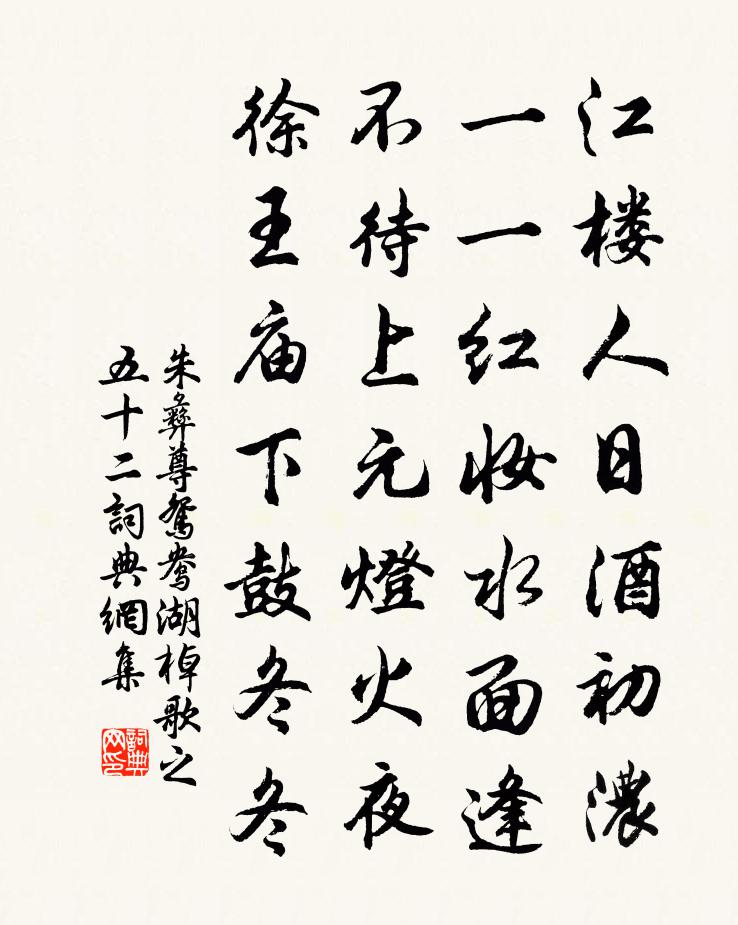 江楼人日酒初濃
一一红妆水面逢
不待上元燈火夜
徐王庙下鼓冬冬
朱彝尊鸳鸯湖棹歌之
五十二詞典網集
詞典
网印